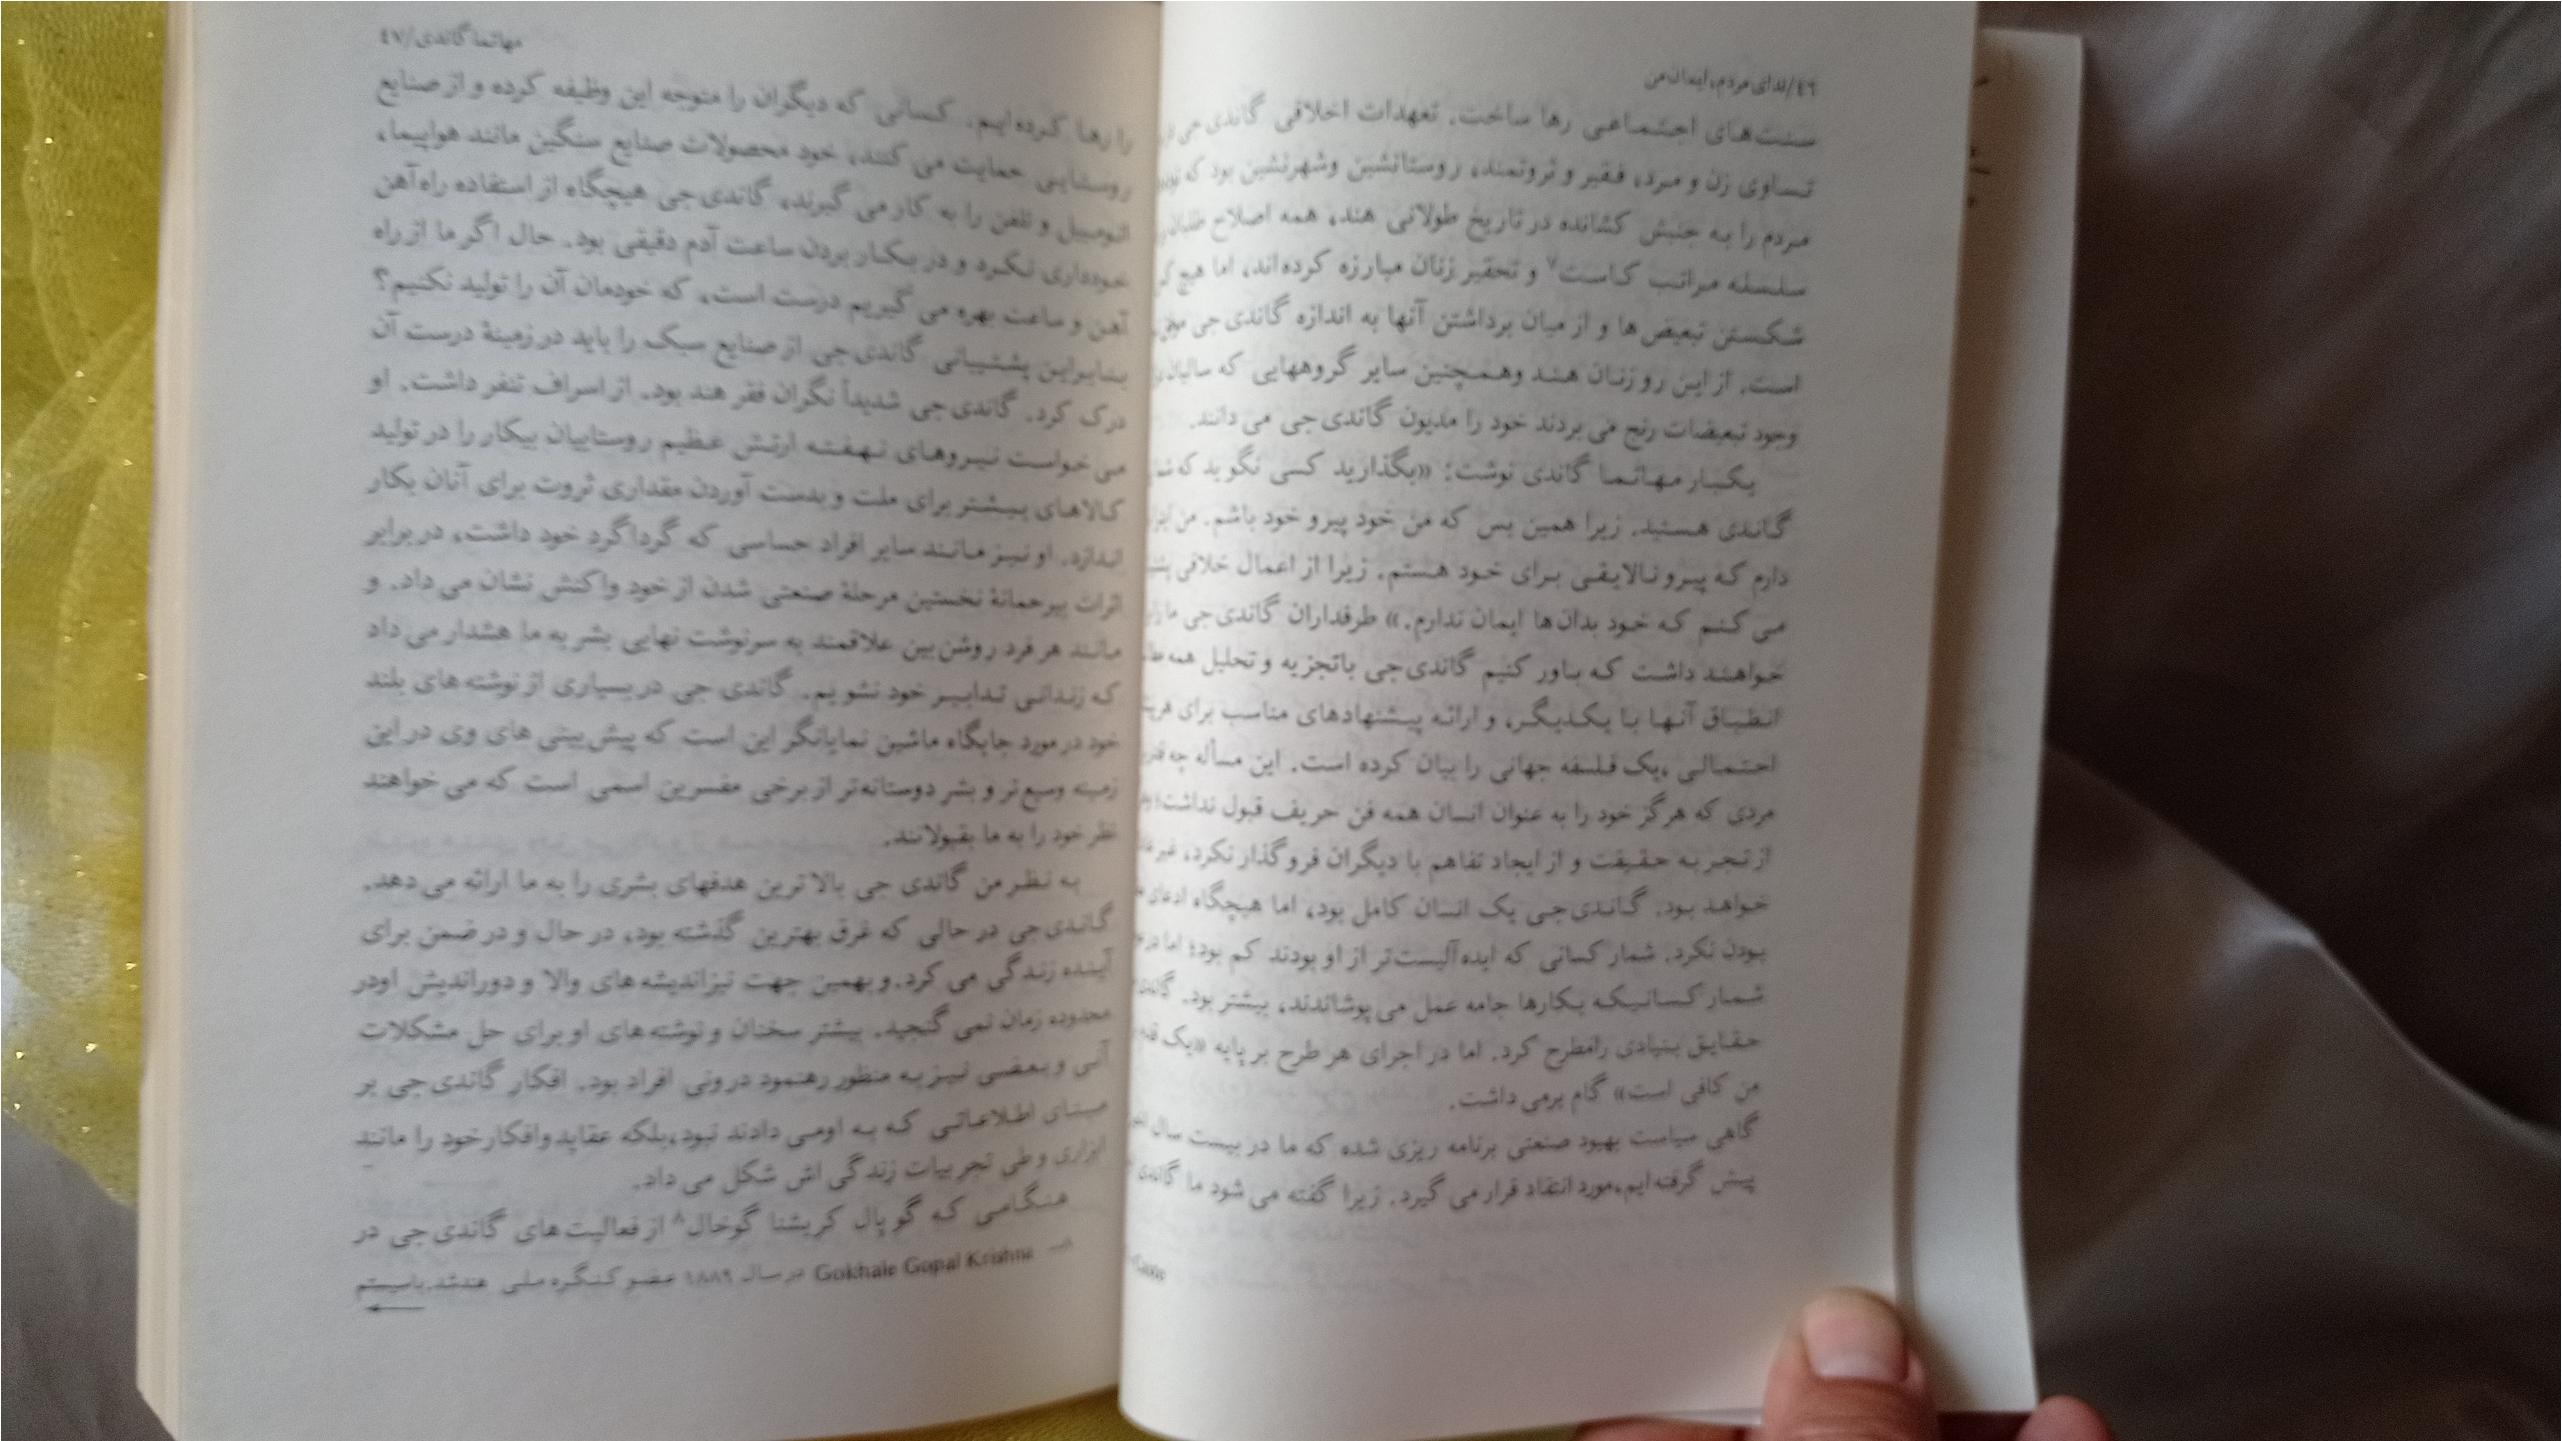 ٤٦/ندای مردم، ایمان من
سنت‌های اجتماعی رها ساخت. تعهدات اخلاقی گاندی جی
تساوی زن و مرد، فقیر و ثروتمند، روستانشین وشهرنشین بود که
مردم را به جنبش کشانده در تاریخ طولانی هند، همه اصلاح طلبان
سلسله مراتب کاست۷ و تحقیر زنان مبارزه کرده‌اند، اما هیچ
شکستن تبعیض‌ها و از میان برداشتن آنها به اندازه گاندی جی
است. از این رو زنان هند وهمچنین سایر گروههایی که سالیان
وجود تبعیضات رنج می بردند خود را مدیون گاندی جی می دانند.
یکبار مهاتما گاندی نوشت: «بگذارید کسی نگوید که
گاندی هستید. زیرا همین بس که من خود پیرو خود باشم. من
دارم که پیرو نالایقی برای خود هستم. زیرا از اعمال خلافی
می کنم که خود بدان‌ها ایمان ندارم.» طرفداران گاندی جی ما را
خواهند داشت که باور کنیم گاندی جی باتجزیه و تحلیل همه
انطباق آنها با یکدیگر، و ارائه پیشنهادهای مناسب برای
احتمالی ،یک فلسفه جهانی را بیان کرده است. این مسأله چه
مردی که هرگز خود را به عنوان انسان همه فن حریف قبول نداشت؛
از تجربه حقیقت و از ایجاد تفاهم با دیگران فروگذار نکرد،
خواهد بود. گاندی جی یک انسان کامل بود، اما هیچگاه ادعای
بودن نکرد. شمار کسانی که ایده‌آلیست‌تر از او بودند کم بود؛ اما در
شمار کسانیکه بکارها جامه عمل می پوشاندند، بیشتر بود.
حقایق بنیادی رامطرح کرد. اما در اجرای هر طرح بر پایه «یک قدم
من کافی است» گام برمی داشت.
گاهی سیاست بهبود صنعتی برنامه ریزی شده که ما در بیست سال
پیش گرفته‌ایم،مورد انتقاد قرار می گیرد. زیرا گفته می شود ما گاندی
مهاتما گاندی/٤٧
را رها کرده‌ایم. کسانی که دیگران را متوجه این وظیفه کرده و از صنایع
روستایی حمایت می کنند، خود محصولات صنایع سنگین مانند هواپیما،
اتومبیل و تلفن را به کار می گیرند، گاندی جی هیچگاه از استفاده راه‌آهن
خودداری نکرد و در بکار بردن ساعت آدم دقیقی بود. حال اگر ما از راه
آهن و ساعت بهره می گیریم درست است، که خودمان آن را تولید نکنیم؟
بنابراین پشتیبانی گاندی جی از صنایع سبک را باید در زمینهٔ درست آن
درک کرد. گاندی جی شدیداً نگران فقر هند بود. از اسراف تنفر داشت. او
می خواست نیروهای نهفته ارتش عظیم روستاییان بیکار را در تولید
کالاهای بیشتر برای ملت و بدست آوردن مقداری ثروت برای آنان بکار
اندازد. او نیز مانند سایر افراد حساسی که گرداگرد خود داشت، در برابر
اثرات بیرحمانهٔ نخستین مرحلهٔ صنعتی شدن از خود واکنش نشان می داد. و
مانند هر فرد روشن‌بین علاقمند به سرنوشت نهایی بشر به ما هشدار می داد
که زندانی تدابیر خود نشویم. گاندی جی در بسیاری از نوشته های بلند
خود در مورد جایگاه ماشین نمایانگر این است که پیش‌بینی های وی در این
زمینه وسیع‌تر و بشر دوستانه‌تر از برخی مفسرین اسمی است که می خواهند
نظر خود را به ما بقبولانند.
به نظر من گاندی جی بالاترین هدفهای بشری را به ما ارائه می دهد.
گاندی جی در حالی که غرق بهترین گذشته بود، در حال و در ضمن برای
آینده زندگی می کرد.و بهمین جهت نیزاندیشه های والا و دوراندیش اودر
محدوده زمان نمی گنجید. بیشتر سخنان و نوشته های او برای حل مشکلات
آنی و بعضی نیز به منظور رهنمود درونی افراد بود. افکار گاندی جی بر
مبنای اطلاعاتی که به اومی دادند نبود،بلکه عقایدوافکارخود را مانند
ابزاری و طی تجربیات زندگی اش شکل می داد.
هنگامی که گوپال کریشنا گوخال۸ از فعالیت های گاندی جی در
۸— Gokhale Gopal Krishna در سال ۱۸۸۹ عضو کنگره ملی هندشد.باسیستم